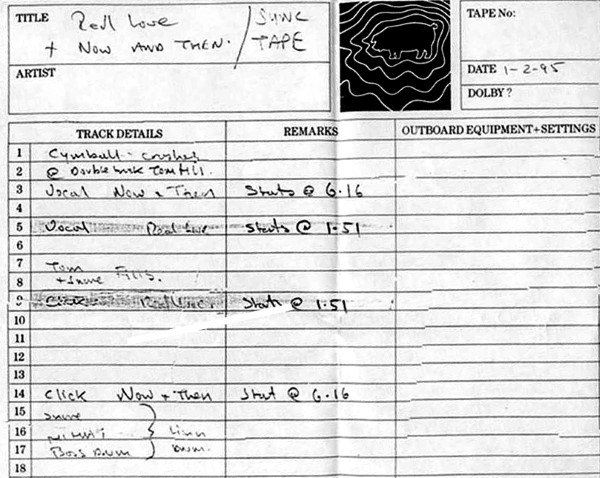 TITLE Real Love / SYNC
+ NOW AND THEN. TAPE
ARTIST
TAPE No:
DATE 1-2-95
DOLBY?
TRACK DETAILS REMARKS OUTBOARD EQUIPMENT+SETTINGS
1 Cymball - crashes
2 @ Double track Tom Fill.
3 Vocal Now + Then Starts @ 6.16
4
5 Vocal Real Love Starts @ 1-51
6
7 Tom
8 + Snare Fills.
9 Click Real Love Starts @ 1.51
10
11
12
13
14 Click Now + Then Start @ 6.16
15 Snare
16 Hi HAT Linn
17 Bass Drum Drum.
18